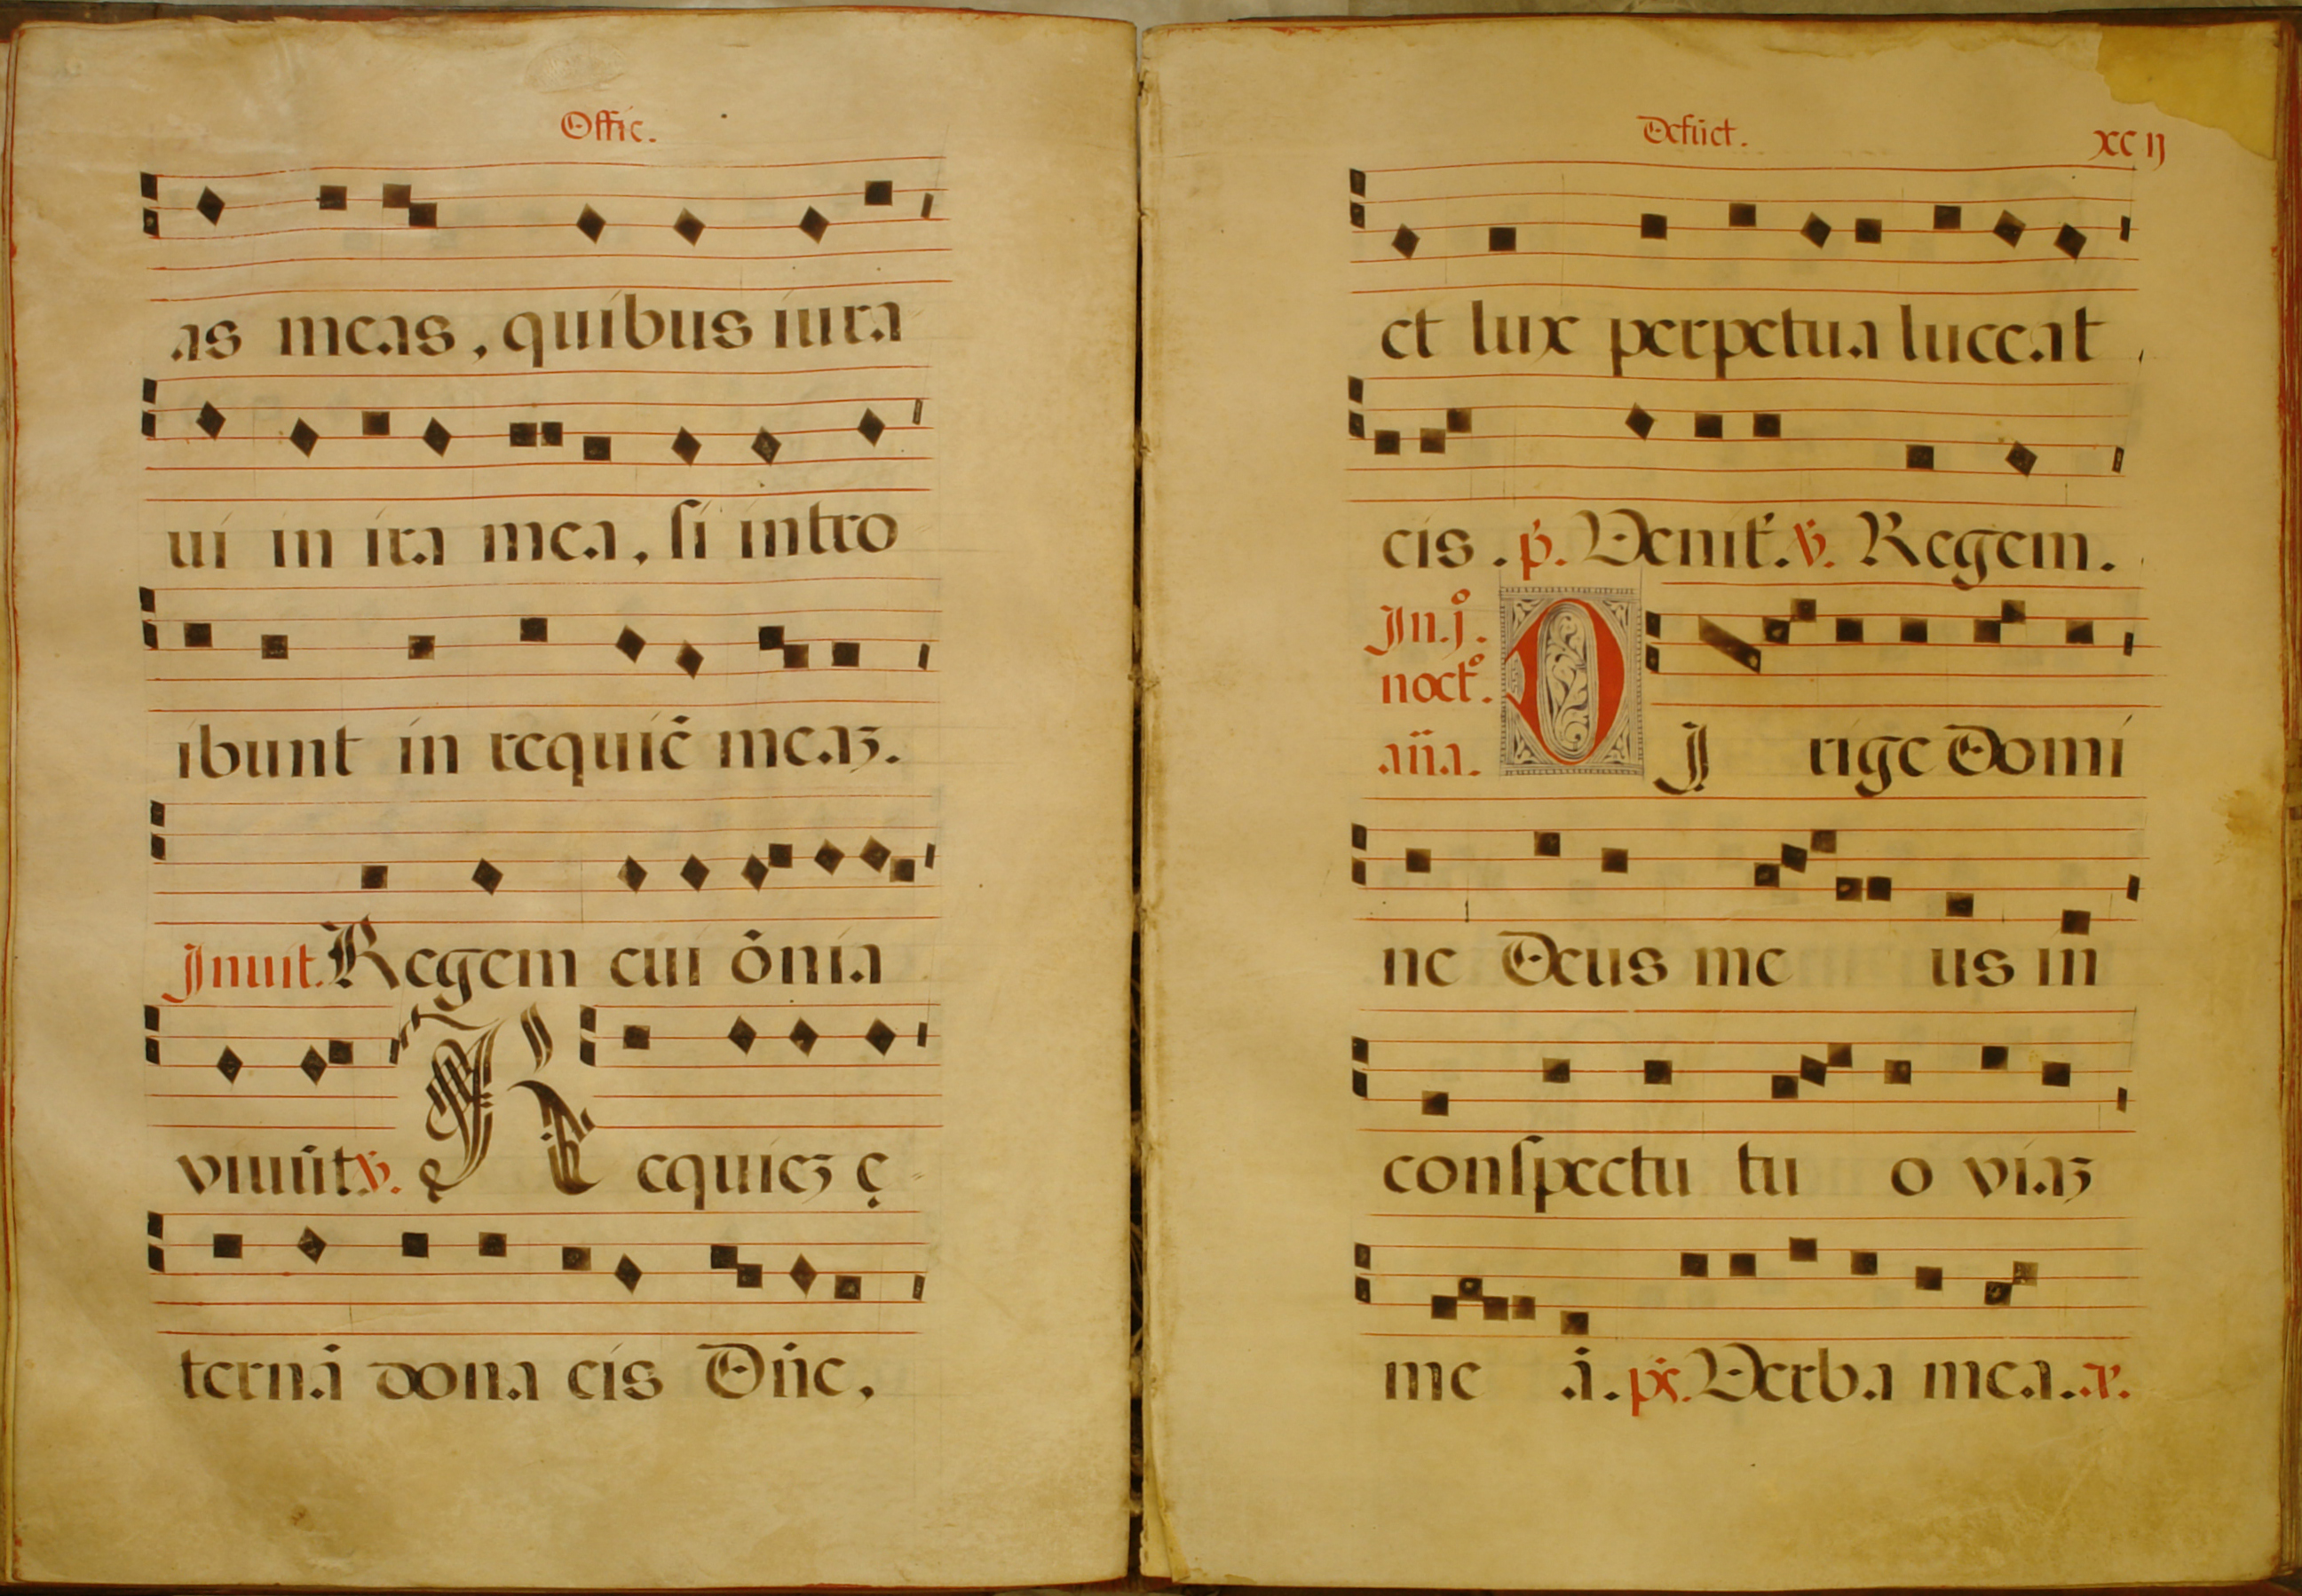 Offic.
as meas, quibus iura
ui in ira mea, si intro
ibunt in requiē meaʒ.
Inuit. Regem cui ōnia
viuūt. ℣. Requieʒ ę
ternā dona eis Dn̄e,
Defūct. XCII
et lux perpetua luceat
eis. p̄. Venit̄. ℣. Regem.
In. j.º
noct.º
an̄a.
DI rige Domi
ne Deus me us in
conſpectu tu o viaʒ
me ā. ps̄. Verba mea. a.